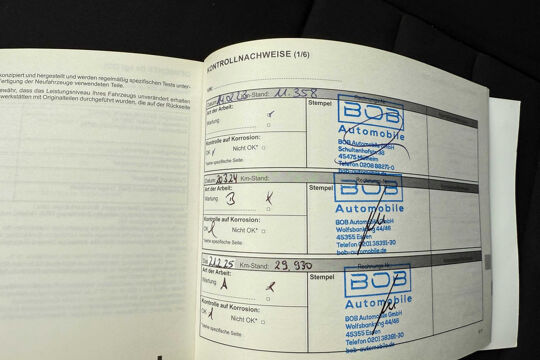 konzipiert und hergestellt und werden regelmäßig spezifischen Tests unter-
fertigung der Neufahrzeuge verwendeten Teile.
ewähr, dass das Leistungsniveau Ihres Fahrzeugs unverändert erhalten
werkstätten mit Originalteilen durchgeführt wurden, die auf der Rückseite
KONTROLLNACHWEISE (1/6)
VIN:
Datum: Km-Stand: 11.358
Art der Arbeit: Stempel
Wartung
Kontrolle auf Korrosion:
OK Nicht OK*
*siehe spezifische Seite
BOB
Automobile
BOB Automobile GmbH
Schultenhofstr. 38
45475 Mülheim
Telefon 0208 88271-0
bob-automobile.de
Datum: 20.3.24 Km-Stand:
Art der Arbeit: Stempel
Wartung B
Kontrolle auf Korrosion:
OK Nicht OK*
*siehe spezifische Seite
BOB
Automobile
BOB Automobile GmbH
Wolfsbankring 44/46
45355 Essen
Telefon 0201 38391-30
bob-automobile.de
21.2.25 Km-Stand: 29.930
Art der Arbeit: Stempel
Wartung A
Kontrolle auf Korrosion:
OK Nicht OK*
*siehe spezifische Seite
BOB
Automobile
BOB Automobile GmbH
Wolfsbankring 44/46
45355 Essen
Telefon 0201 38391-30
bob-automobile.de